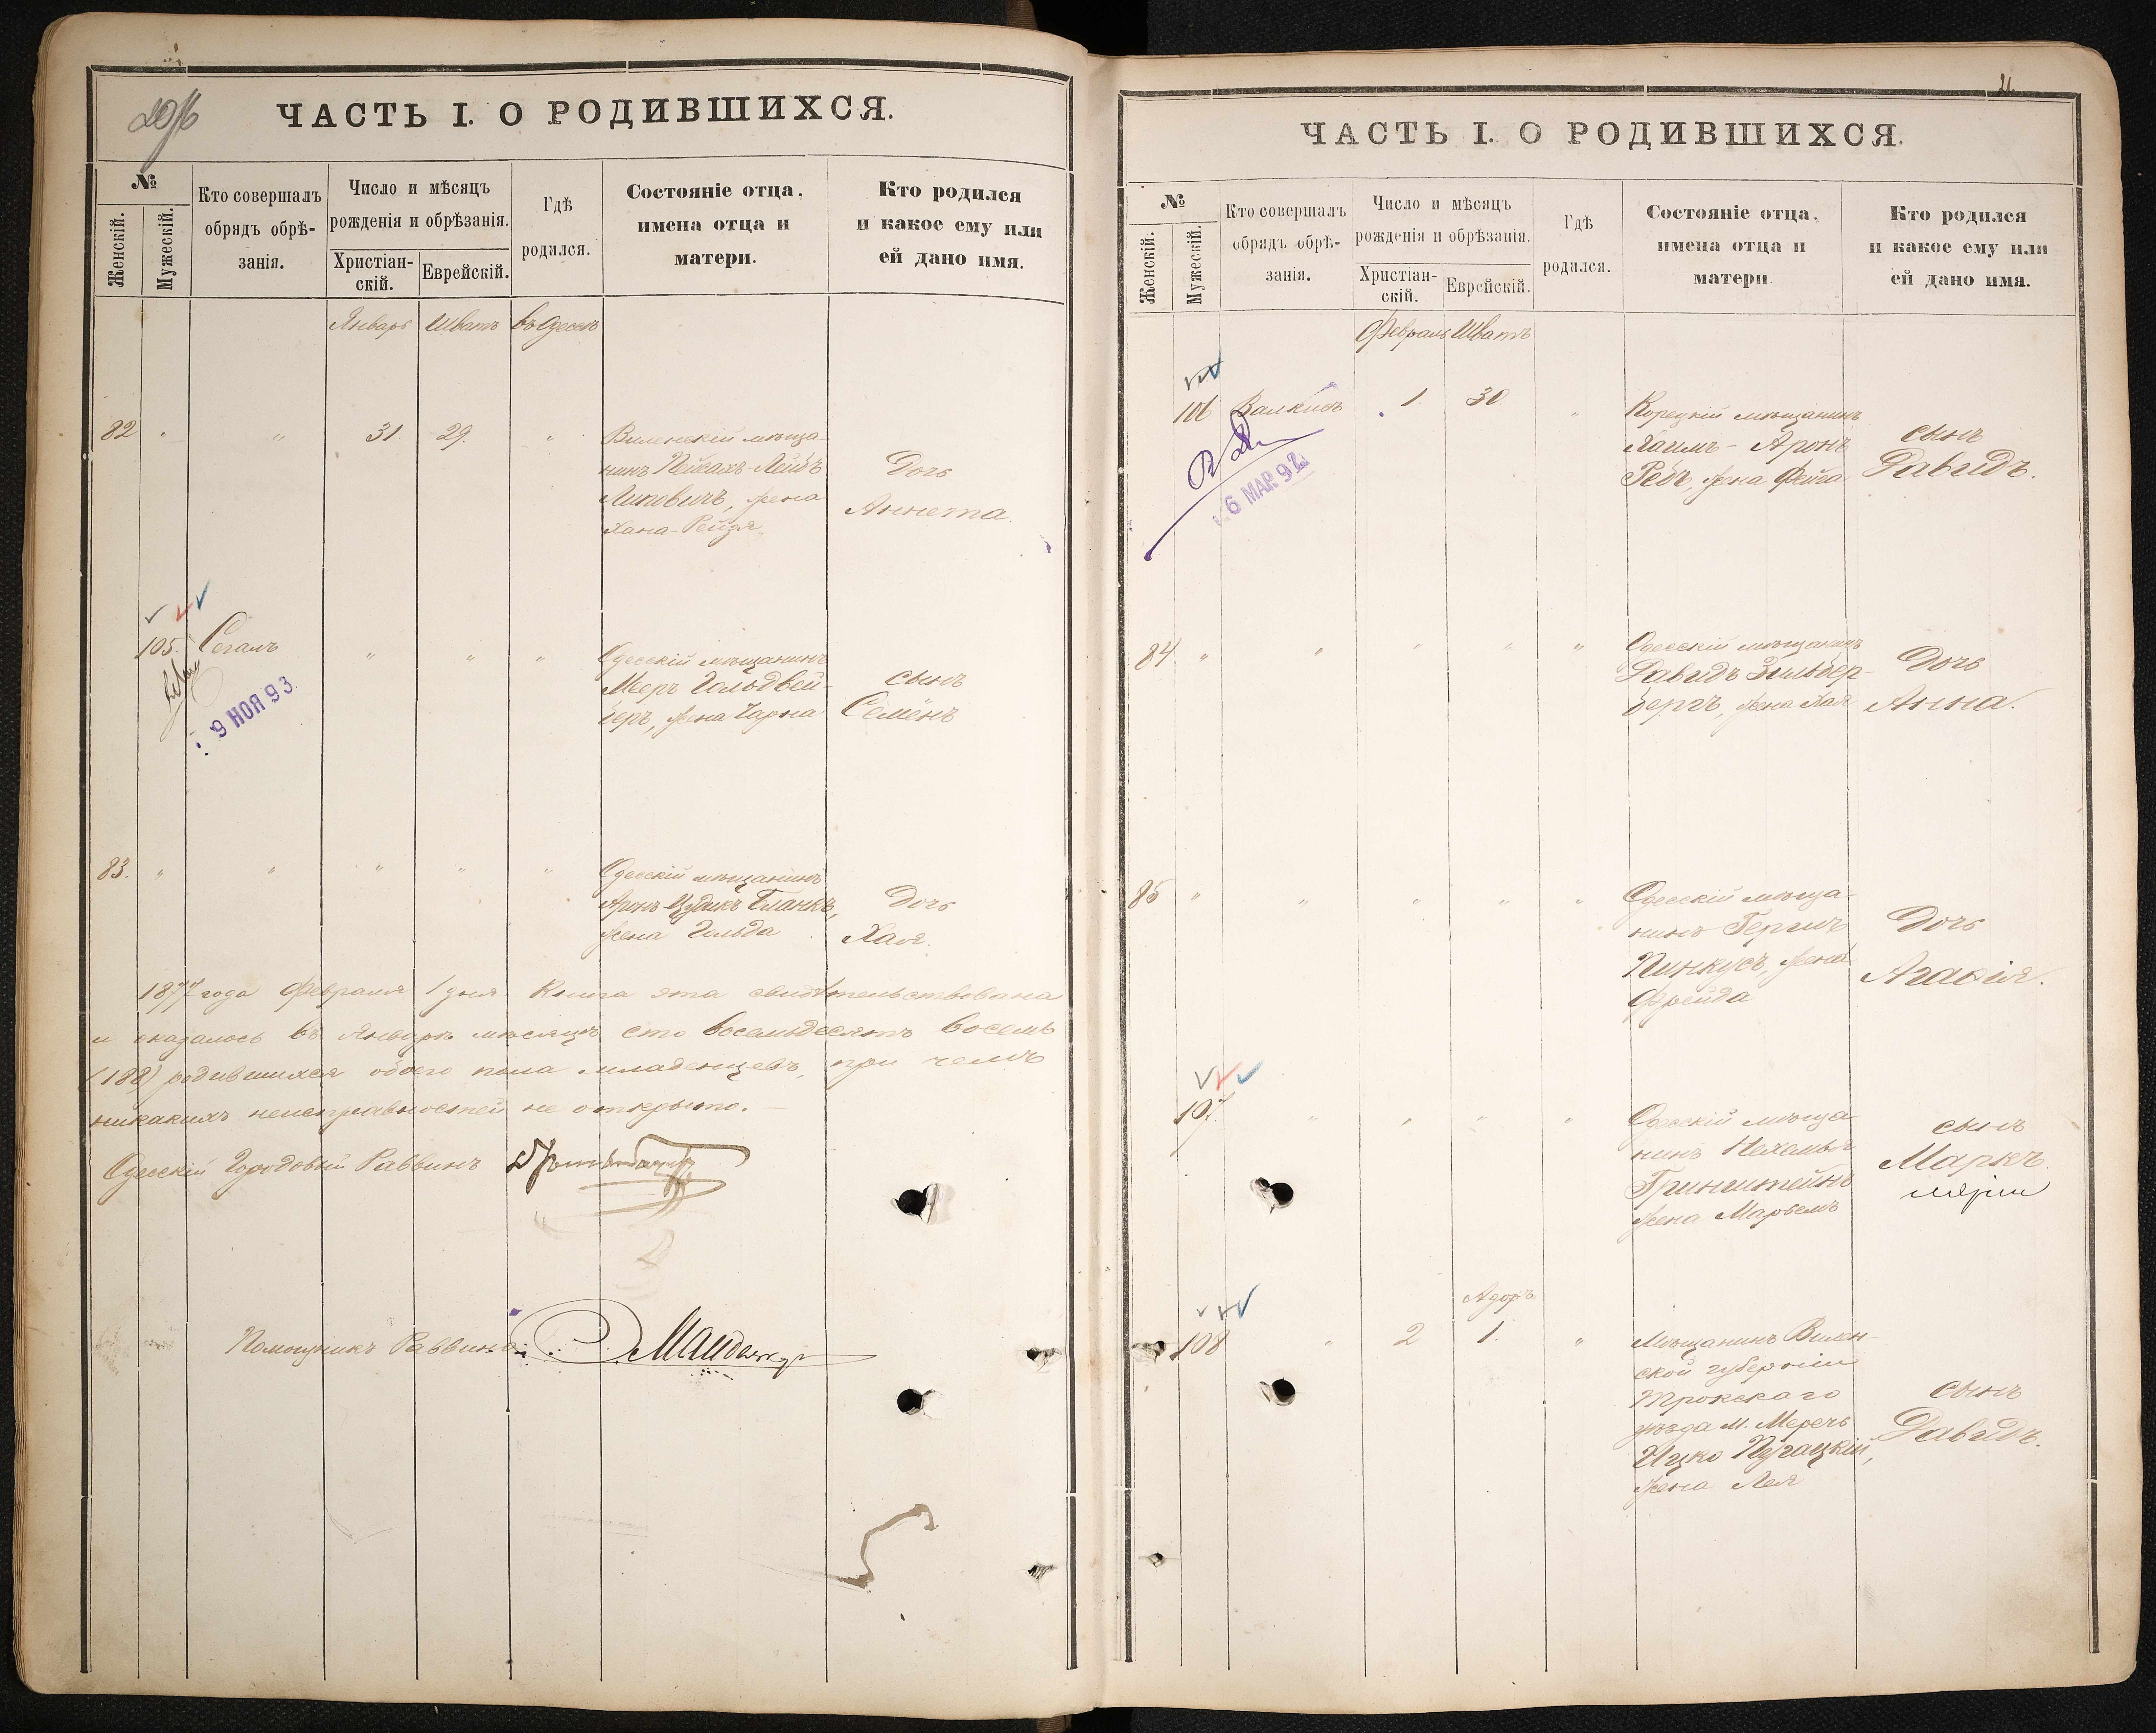 ЧАСТЬ I. О РОДИВШИХСЯ.
№
Женскій.
Мужескій.
Кто совершалъ
обрядъ обрѣ-
занія.
Число и мѣсяцъ
рожденія и обрѣзанія.
Христіан-
скій.
Еврейскій.
Гдѣ
родился.
Состояніе отца,
имена отца и
матери.
Кто родился
и какое ему или
ей дано имя.
Январь Шватъ въ Одессѣ
82 " " 31 29. "
Виленскій мѣща-
нинъ Пейсахъ-Лейбъ
Липовичъ, жена
Хана-Рейзя.
Дочь
Аннета.
105. Сегалъ " " "
Одесскій мѣщанинъ
Мееръ Гольдвей-
беръ, жена Чарна
сынъ
Семёнъ
9 НОЯ 93
83. " " " " "
Одесскій мѣщанинъ
Аронъ-Цудикъ Бланкъ,
жена Гольда
Дочь
Хая.
1877 года Февраля 1 дня Книга эта свидѣтельствована
и оказалось въ Январѣ мѣсяцѣ сто восемьдесятъ восемь
(188) родившихся обоего пола младенцевъ, при чемъ
никакихъ неисправностей не открыто.
Одесскій Городовой Раввинъ
Помощникъ Раввина
21.
ЧАСТЬ I. О РОДИВШИХСЯ.
№
Женскій.
Мужескій.
Кто совершалъ
обрядъ обрѣ-
занія.
Число и мѣсяцъ
рожденія и обрѣзанія.
Христіан-
скій.
Еврейскій.
Гдѣ
родился.
Состояніе отца,
имена отца и
матери.
Кто родился
и какое ему или
ей дано имя.
Февраль Шватъ
106 1. 30. "
Корецкій мѣщанинъ
Хаимъ-Аронъ
жена Фейга
сынъ
Давидъ.
6 МАР. 92
84 " " " " "
Одесскій мѣщанинъ
Давидъ Зильбер-
бергъ, жена Хая
Дочь
Анна.
85 " " " " "
Одесскій мѣща-
нинъ Гершъ
Пинкусъ, жена
Фрейда
Дочь
107. " " " "
Одесскій мѣща-
нинъ Нехемья
Гринштейнъ
жена Марьемъ
сынъ
Маркъ.
Адаръ
108 " 2 1. "
Мѣщанинъ Вилен-
ской губерніи
Трокскаго
уѣзда м. Меречь
Ицко Пугацкій,
жена Лея
сынъ
Давидъ.